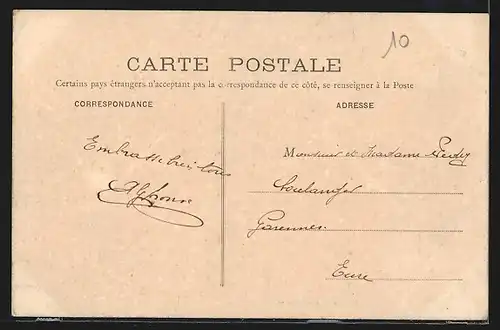 10
CARTE POSTALE
Certains pays étrangers n'acceptant pas la correspondance de ce côté, se renseigner à la Poste
CORRESPONDANCE
ADRESSE
Embrasse
Alphonse
Monsieur et Madame
Boulanger
Garennes
Eure